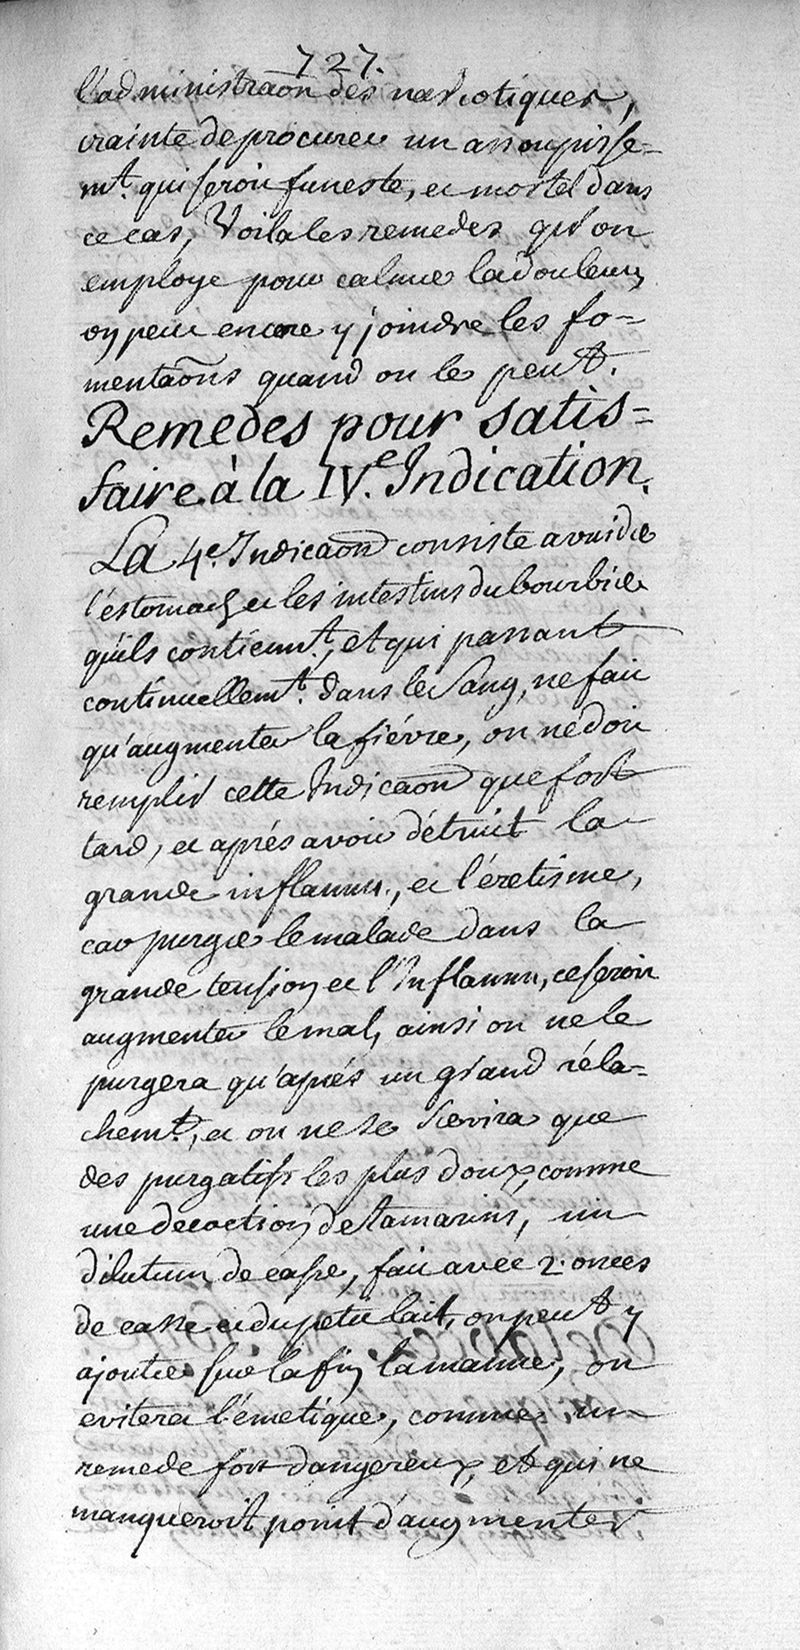 727.
l'administraõn des narcotiques,
crainte de procurer un assoupisse=
mt. qui seroit funeste, et mortel dans
ce cas, Voila les remedes qu'on
employe pour calmer la douleur,
on peut encore y joindre les fo=
mentaõns quand on le peut.
Remedes pour satis=
faire à la IVe. Indication.
La 4e. Indicaõn consiste a vuider
l'éstomach et les intestins du bourbier
qu'ils contienn.t, et qui passant
continuellemt. dans le Sang, ne fait
qu'augmenter la fiévre, on ne doit
remplir cette Indicaõn que fort
tard, et aprés avoir détruit la
grande inflamm., et l'éretisme,
car purger le malade dans la
grande tension et l'Inflamm, ce seroit
augmenter le mal, ainsi on ne le
purgera qu'aprés un grand réla=
chemt., et on ne se servira que
des purgatifs les plus doux, comme
une decoction de tamarins, un
dilutum de casse, fait avec 2. onces
de casse et du petit lait, on peut y
ajouter sur la fin la manne, on
evitera l'émetique, comme un
remede fort dangereux, et qui ne
manqueroit point d'augmenter